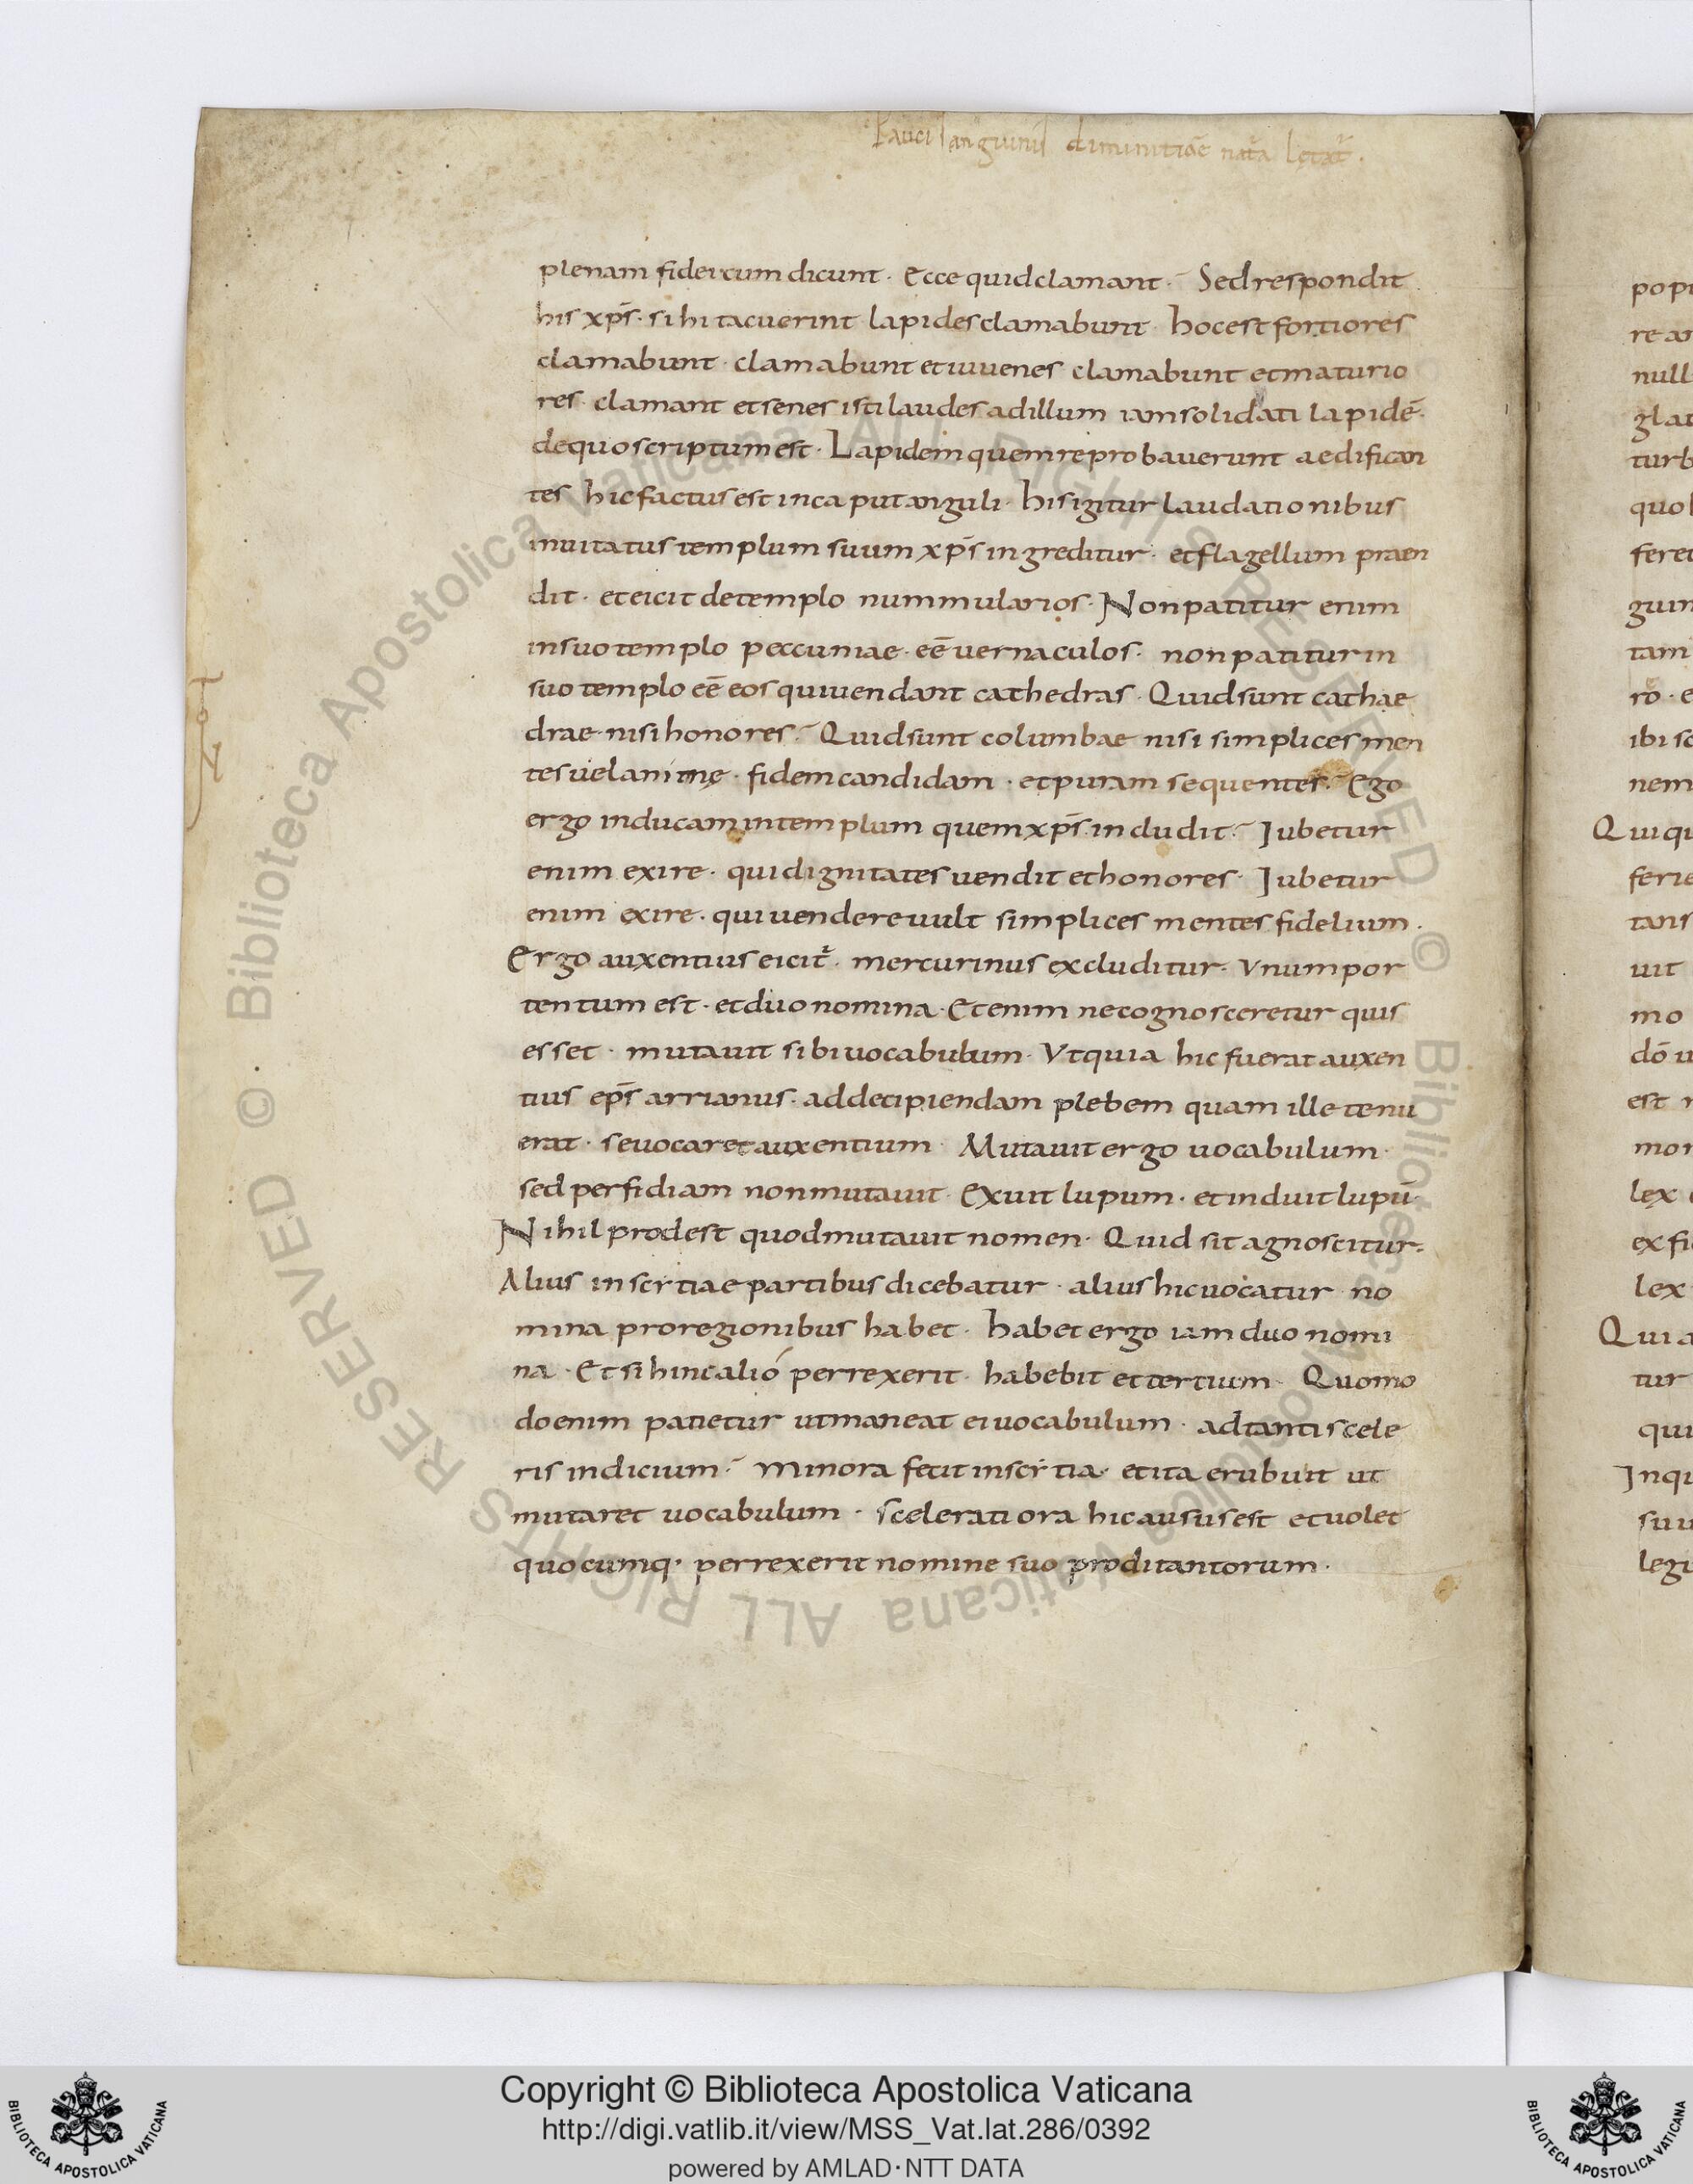 sanguinis
plenam fidei cum dicunt · Ecce quid clamant · Sed respondit
his xp̄s · si hi tacuerint lapides clamabunt · hoc est fortiores
clamabunt · clamabunt et iuuenes clamabunt et maturio
res · clamant et senes isti laudes ad illum iam solidati lapidē ·
de quo scriptum est · Lapidem quem reprobauerunt aedifican
tes hic factus est in caput anguli · his igitur laudationibus
inuitatus templum suum xp̄s ingreditur · et flagellum praen
dit · et eicit de templo nummularios · Non patitur enim
in suo templo peccuniae · eē uernaculos · non patitur in
suo templo eē eos qui uendant cathedras · Quid sunt cathae
drae nisi honores? Quid sunt columbae nisi simplices men
tes uel animę · fidem candidam · et puram sequentes? Ego
ergo inducam in templum quem xp̄s includit? Iubetur
enim exire · qui dignitates uendit et honores · Iubetur
enim exire · qui uendere uult simplices mentes fidelium ·
Ergo auxentius eicit̄ · mercurinus excluditur · Vnum por
tentum est · et duo nomina · Etenim ne cognosceretur quis
esset · mutauit sibi uocabulum · Vt quia hic fuerat auxen
tius ep̄s arrianus · ad decipiendam plebem quam ille tenu
erat · se uocaret auxentium · Mutauit ergo uocabulum ·
sed perfidiam non mutauit · Exuit lupum · et induit lupū ·
Nihil prodest quod mutauit nomen · Quid sit agnoscitur ·
Alius in scẏtiae partibus dicebatur · alius hic uocatur no
mina pro regionibus habet · habet ergo iam duo nomi
na · Et si hinc alió perrexerit · habebit et tertium · Quomo
do enim patietur ut maneat ei uocabulum · ad tanti scele
ris indicium? Minora fecit in scẏtia · et ita erubuit ut
mutaret uocabulum · scelerati ora hic ausus est et uolet
quocumq· perrexerit nomine suo prodi tantorum ·
popu
quo
Qui qu
uit
mo
est
lex
lex
tur
qui
© Biblioteca Apostolica Vaticana ALL RIGHTS RESERVED © Biblioteca Apostolica Vaticana ALL RIGHTS RESERVED
Copyright © Biblioteca Apostolica Vaticana
http://digi.vatlib.it/view/MSS_Vat.lat.286/0392
powered by AMLAD·NTT DATA
BIBLIOTECA APOSTOLICA VATICANA
BIBLIOTECA APOSTOLICA VATICANA